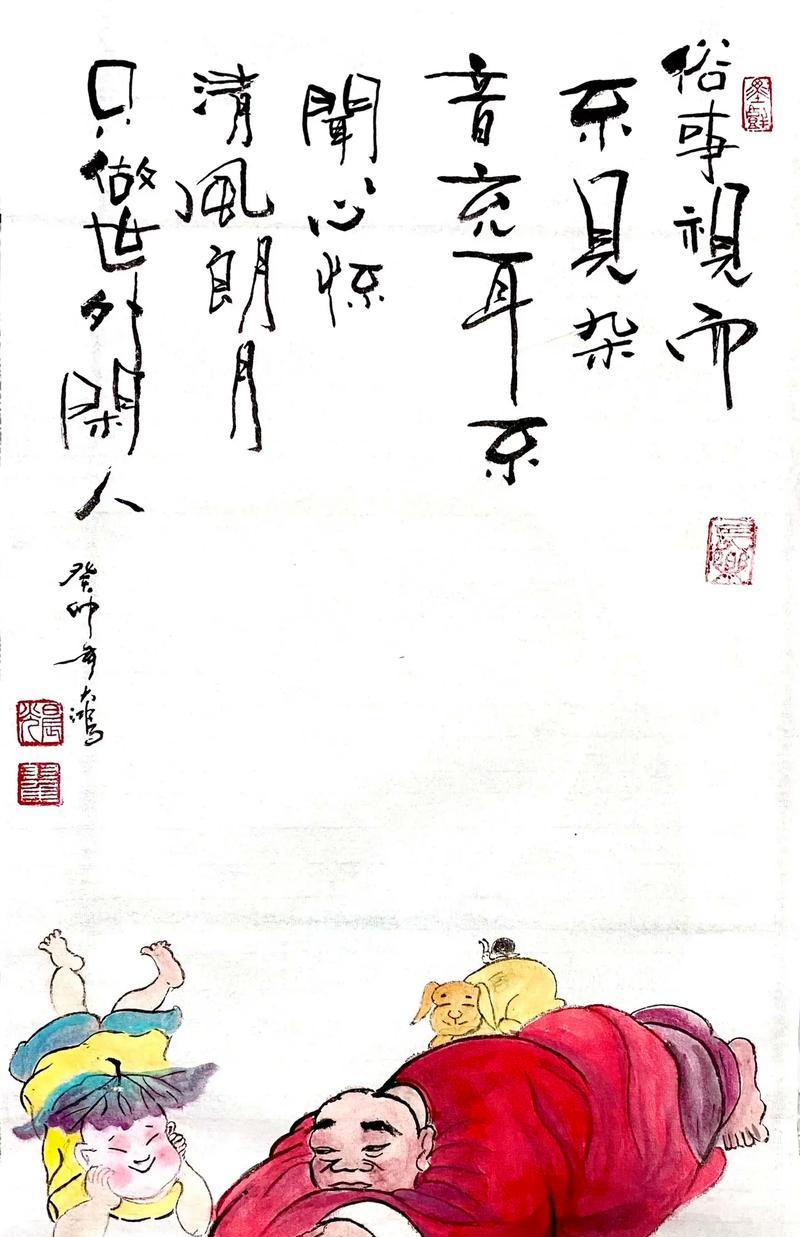 墨戲
俗事視而
不見杂
音充耳不
聞心怀
清風朗月
只做世外閑人
癸卯年大鴻
長樂